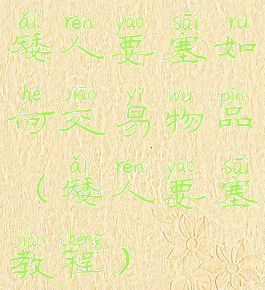 ǎi rén yào sāi rú
矮人要塞如
hé jiāo yì wù pǐn
何交易物品
ǎi rén yào sāi
（矮人要塞
jiào chéng
教程）